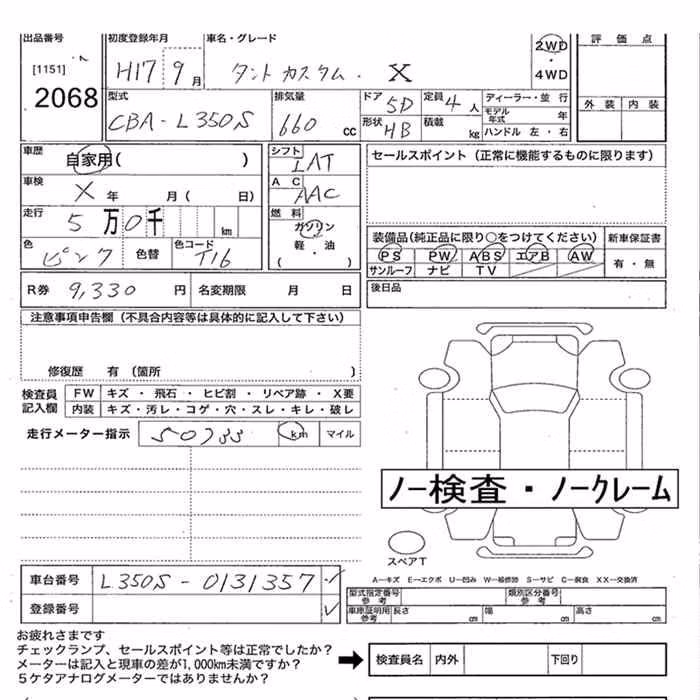 出品番号 初度登録年月 車名・グレード 2WD 評価点
[1151] H17 9月 タントカスタム・ X ・ 4WD
2068 型式 排気量 ドア 5D 定員 4人 ディーラー・並行 外装 内装
CBA-L350S 660 cc 形状 HB 積載 kg モデル年式 年
ハンドル 左・右
車歴 自家用( ) シフト LAT セールスポイント (正常に機能するものに限ります)
車検 X 年 月( 日) AC AAC
走行 5万0千 km 燃料 ガソリン 装備品(純正品に限り○をつけてください) 新車保証書
色 ピンク 色替 色コード T16 軽・油 ( ) PS PW ABS エアB AW 有・無
サンルーフ ナビ TV
R券 9,330 円 名変期限 月 日 後日品
注意事項申告欄 (不具合内容等は具体的に記入して下さい)
修復歴 有 (箇所 )
検査員 FW キズ ・ 飛石 ・ ヒビ割 ・ リペア跡 ・ X要
記入欄 内装 キズ・汚レ・コゲ・穴・スレ・キレ・破レ
走行メーター指示 km マイル
ノー検査・ノークレーム
スペアT
車台番号 L350S-0131357
A―キズ E―エクボ U―凹み W―補修跡 S―サビ C―腐食 XX―交換済
登録番号 型式指定番号 参考 類別区分番号 参考
車庫証明用 参考 長さ cm 幅 cm 高さ cm
お疲れさまです
チェックランプ、セールスポイント等は正常でしたか？
メーターは記入と現車の差が1,000km未満ですか？
5ケタアナログメーターではありませんか？
検査員名 内外 下回り